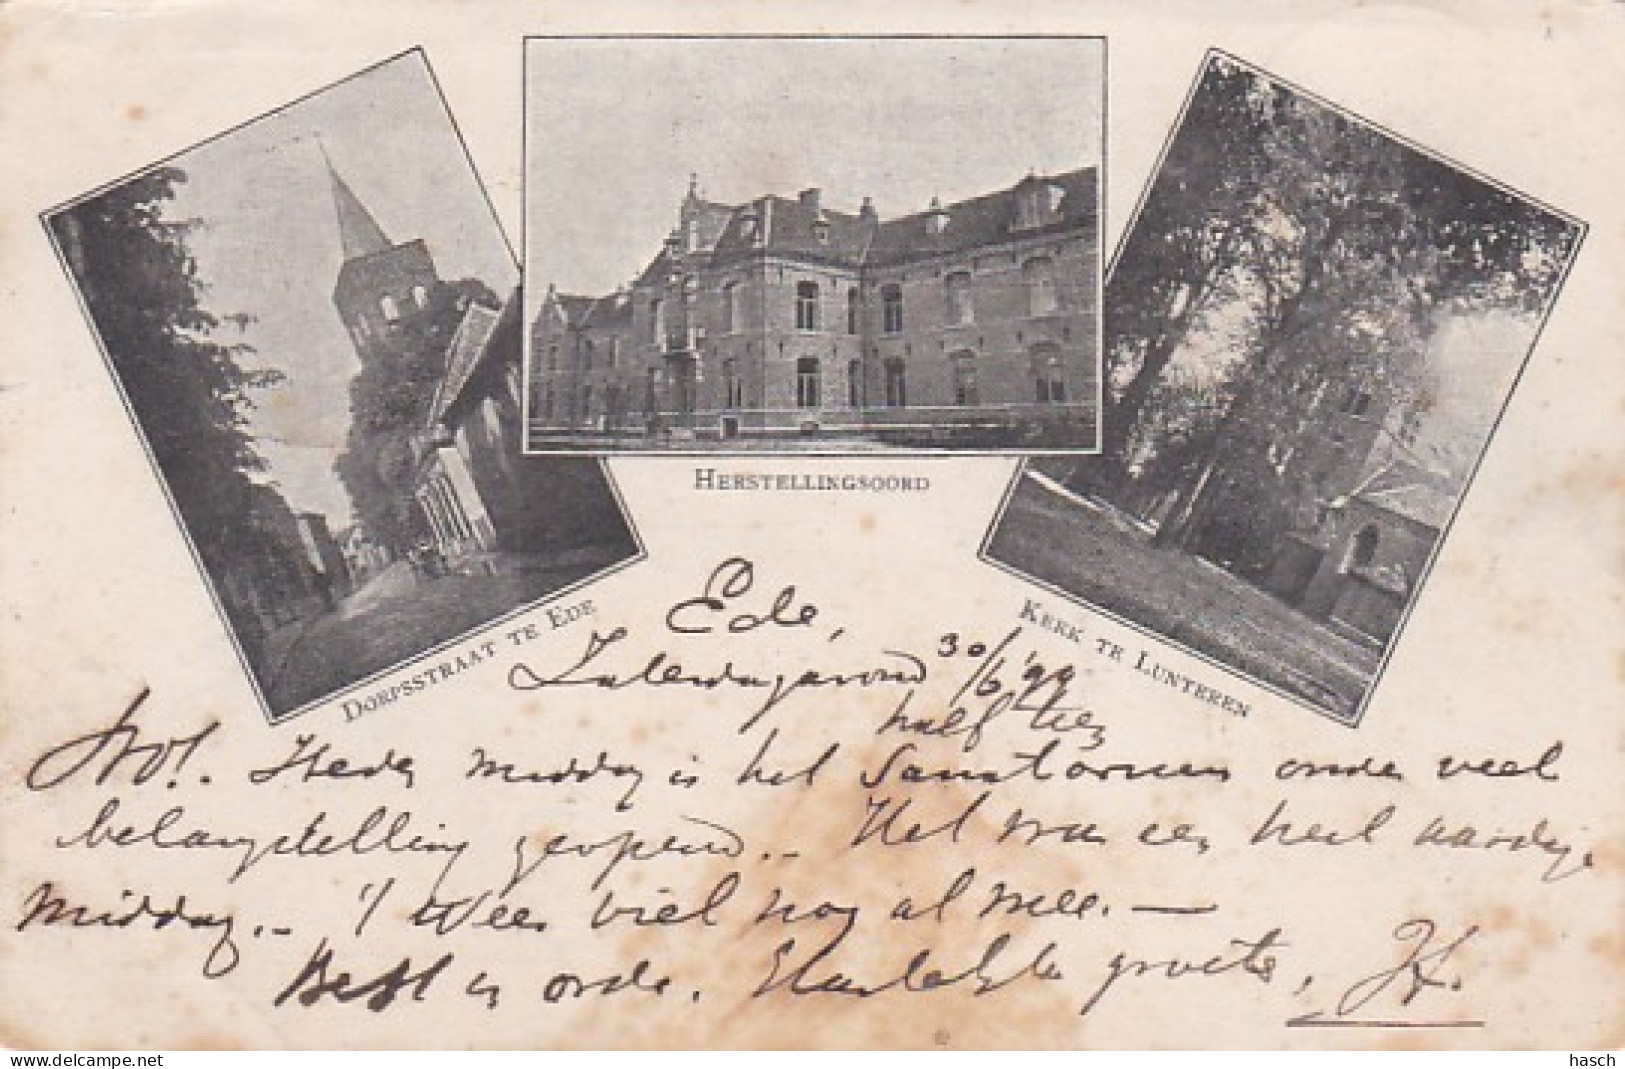 HERSTELLINGSOORD
DORPSSTRAAT TE EDE
KERK TE LUNTEREN
Ede,
Zaterdagavond 30/6 '99
half tien
No!. Heden middag is het Sanatorium onder veel
belangstelling geopend.. Het was een heel aardige
middag.. 't Weer viel nog al mee. —
Best in orde. Hartelijke groete,
delcampe.net
hasch